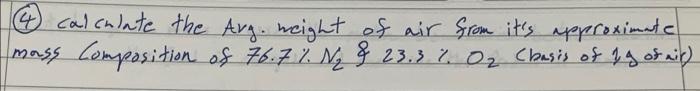 ④ calculate the Avg. weight of air from it's approximate
mass Composition of 76.7 % N₂ & 23.3 % O₂ (basis of 1g of air)